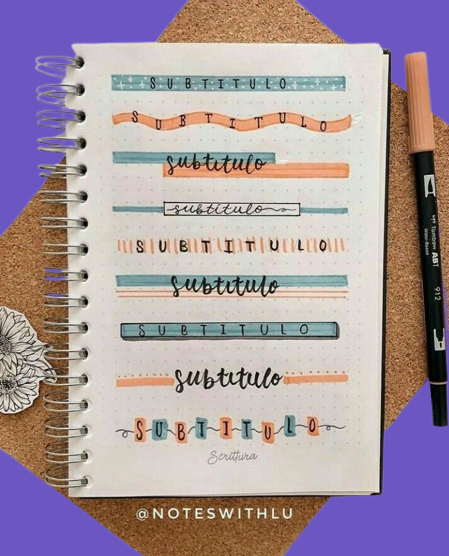 SUBTITULO
SUBTITULO
subtitulo
subtitulo
SUBTITULO
subtitulo
SUBTITULO
subtitulo
SUBTITULO
Scrittura
Tombow ABT
912
@NOTESWITHLU